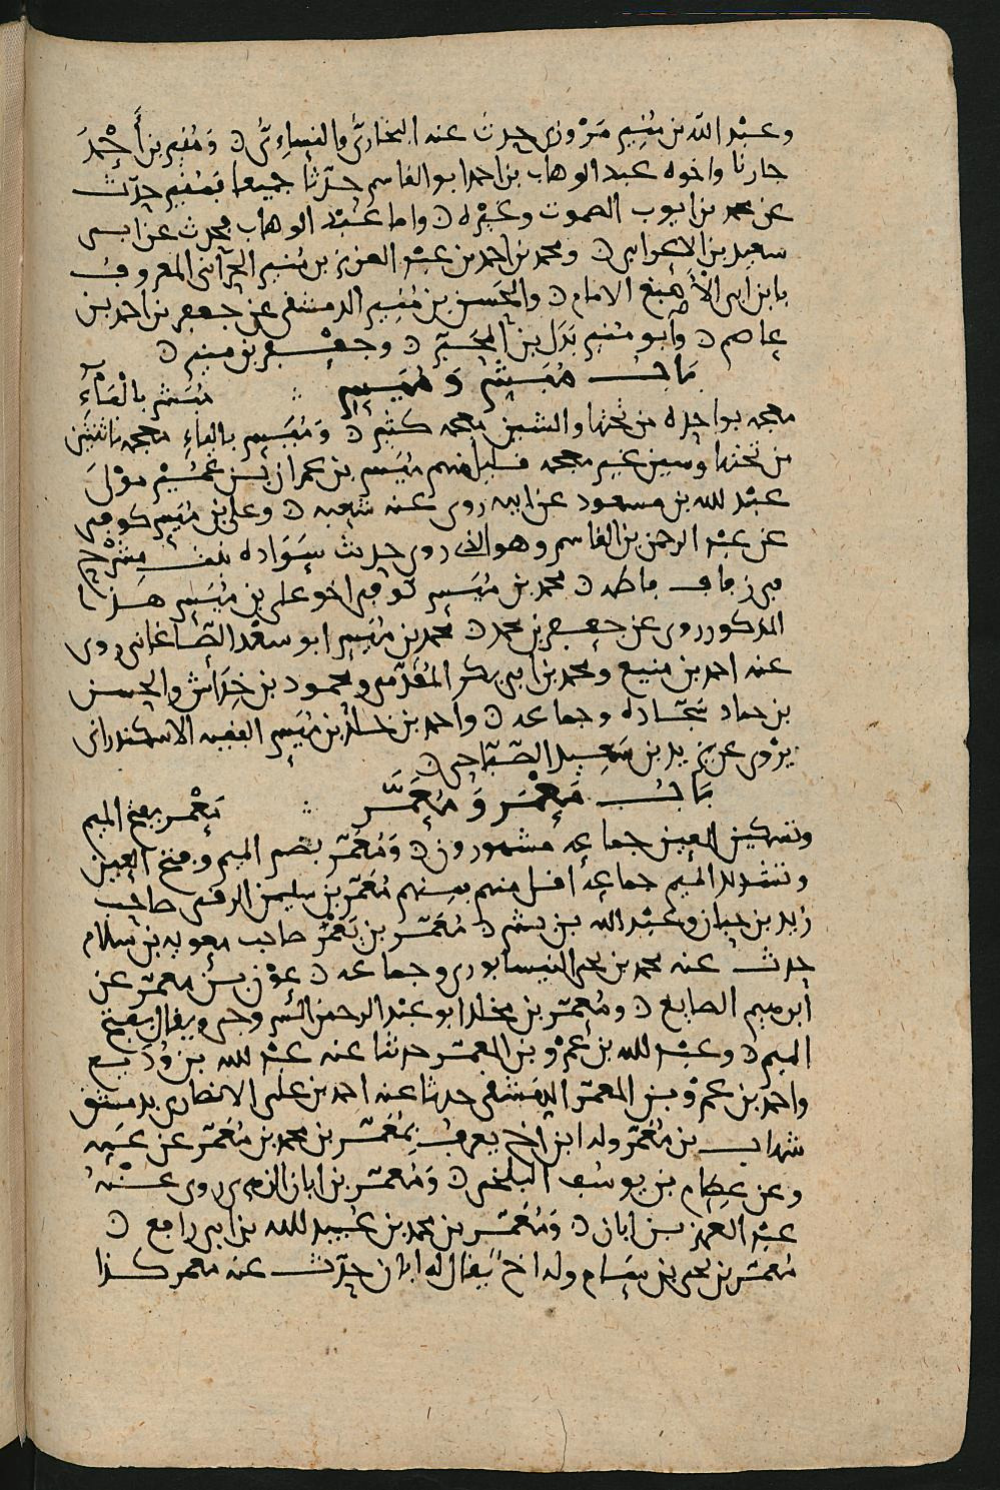 وعبْد الله بن مُنِير مَرْوزي حدث عنه البخاريُّ والنساءِىُّ ۞ وَمُنير بن أَحْمَدَ
حارنا واخوه عبد الوهاب بن احمد ابو القاسم حدّثا جميعا فمُنير حدّث
عن محمد بن ايوب الصموت وغَيْره ۞ واما عَبْد الوهاب فحدث عن ابى
سعيد بن الاعرابى ۞ ومحمد بن احمد بن عبد العزيز بن مُنير الحرّانى المعروف
بابن ابى الأَصْبَغ الامام ۞ والحَسن بن مُنِير الدمشقى عن جعفر بن احمد بن
عاصم ۞ وابو منير بَدَل بن المحَبَّر ۞ وجعْفر بن منير ۞
بَابُ مُبَشِّر وَ مُيَسِّر مُبَشّر بالْبَاءِ
معجمه بواحده من تحتها والشين معجمه كثير ۞ وَمُيَسِّر بالياءِ معجمه باثنتَيْن
من تحتها وسين غير معجمه قليل منهم مُيَسر بن عمران بن عُمَيْر مَوْلَى
عبْد لله بن مسعود عن ابيه روى عنه شعبه ۞ وعلى بن مُيَسر كوفى
عن عبد الرحمن بن القاسم وهو الذى روى حديث سَوَاده
فى زفاف فاطمه ۞ محمد بن مُيَسر كوفى اخو على بن مُيَسر هذا
المذكور روى عن جعفر بن محمد ۞ محمد بن مُيَسر ابو سَعْد الصَّاغانى روى
عنه احمد بن منيع ومحمد بن ابى بكر المُقَدَّمى ومحمود بن خِدَاش والحسن
بن حماد سَجّاده وجماعه ۞ واحمد بن خالد بن مُيَسر الفقيه الاسكندرانى
يرْوى عن يزيد بن سَعِيد الصَّبّاحى ۞
بَابُ مَعْمَر وَ مُعَمَّر مَعْمر بفتح الميم
وتسكين العين جماعه مشهورون ۞ وَمُعَمّر بضم الميم وفتح العين
وتشديد الميم جماعه اقل منهم فمنهم مُعَمّر بن سليمن الرقى صاحب
زيد بن حبان وعبْد الله بن بشر ۞ مُعَمّر بن يَعْمَُر صاحب معويه بن سلام
حدث عنه محمد بن يحيى النيسابورى وجماعه ۞ عوْن بن معمّر عن
ابرهيم الصايغ ۞ ومُعمّر بن مخلد ابو عبْد الرحمن السروجى ويقال بفتح
الميم ۞ وعبد لله بن عَمْرو بن المعمّر حدثنا عنه عبْد لله بن وَرْد
واحمد بن عمرو بن المعمّر الدمشقى حدثنا عنه احمد بن على الانصارى بدمشق
شهاب بن مُعَمّر وله ابن اخ يعرف بمُعَمّر بن محمد بن مُعَمّر عن عَمه
وعن عصام بن يوسُف البلخى ۞ وَمُعمّر بن ابان الزهرى روى عنْهُ
عبْد العزيز بن ابان ۞ وَمُعَمّر بن محمد بن عُبيد لله بن ابى رافع ۞
مُعمّر بن يحيى بن بَسَام وله اخ يُقال له ابان حدّث عنه معمر كذا